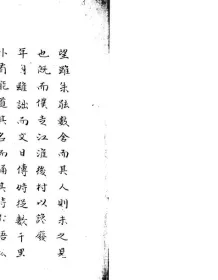 望雖未能數舍而其人則未之見
也既而僕走江淮後村以諮發
年月雖詘而文日傳時從數千里
外有能道其名而誦其詩